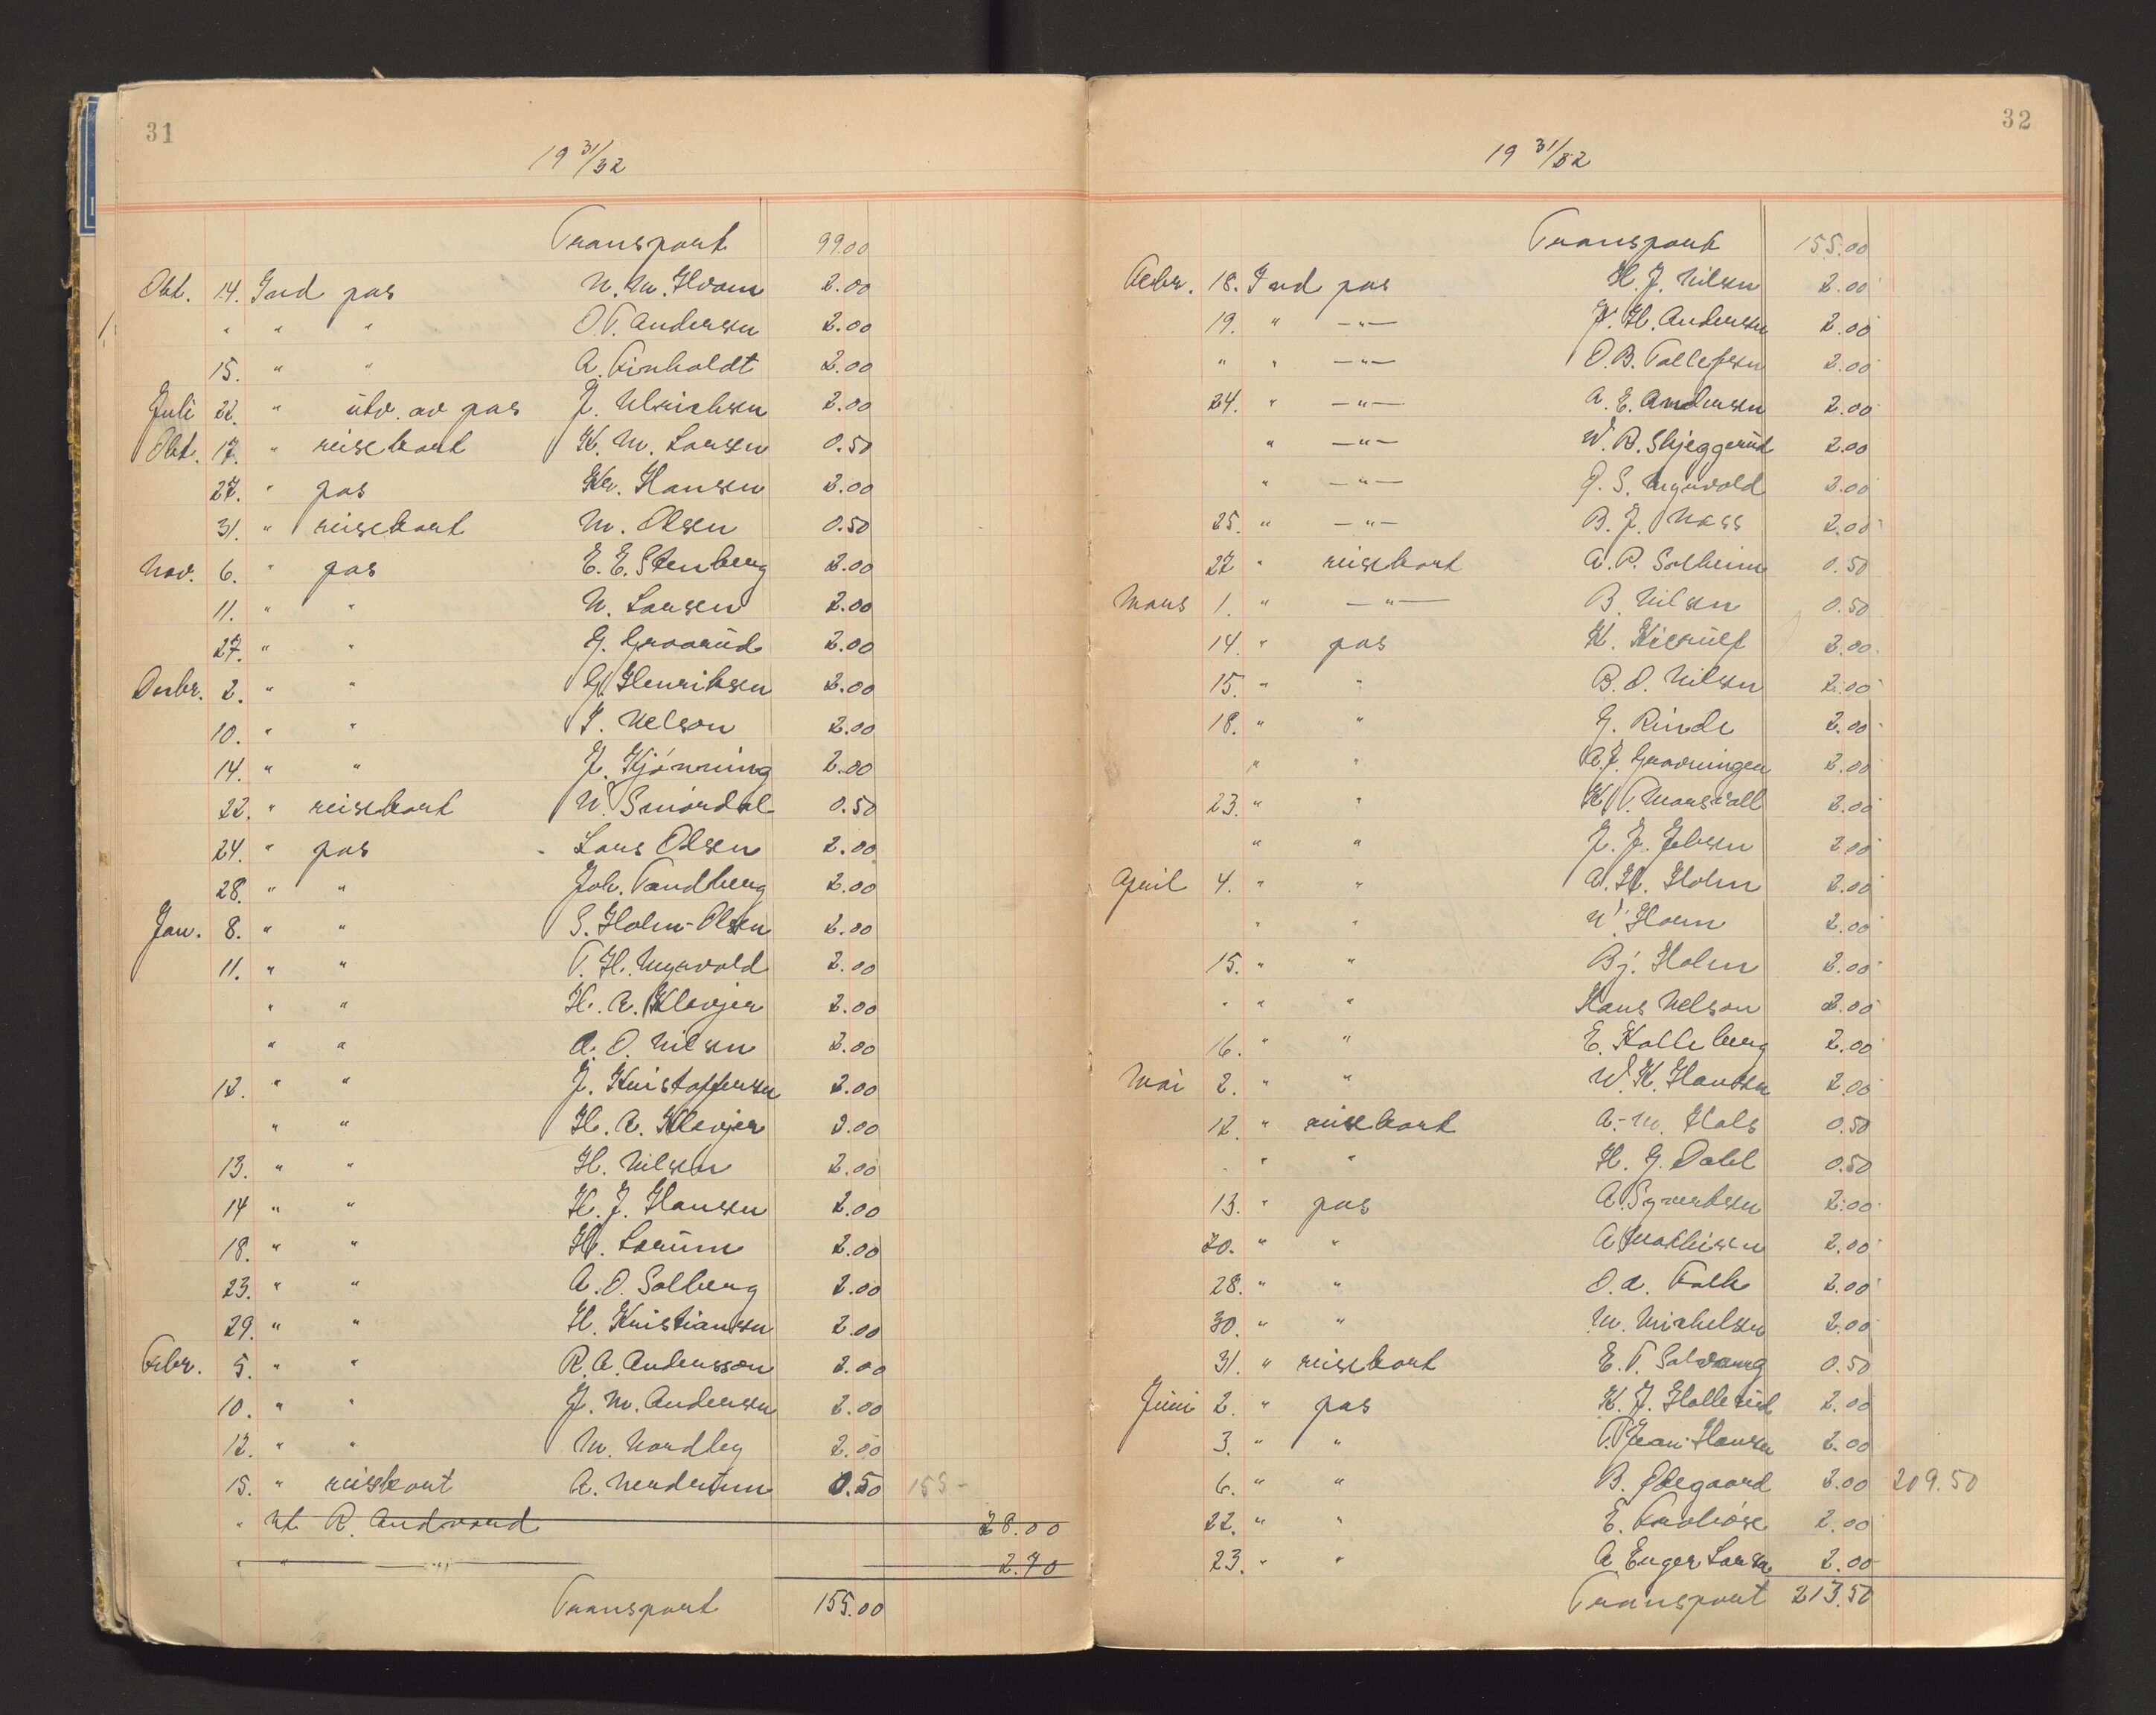 31
19 31/32
Transport 99.00
Okt. 14. Ind pas N. M. Hvam 2.00
" " " O T. Andersen 2.00
15. " " A. Finholdt 2.00
Juli 22. " utv. av pas J. Ulrichsen 2.00
Okt. 17. " reisekort K. M. Larsen 0.50
27. " pas Kr. Hansen 2.00
31. " reisekort M. Olsen 0.50
Nov. 6. " pas E. E. Stenberg 2.00
11. " " N. Larsen 2.00
27. " " G. Graarud 2.00
Desbr. 2. " " G. Henriksen 2.00
10. " " T. Nelson 2.00
14. " " J. Kjønning 2.00
22. " reisekort N. Smørdal 0.50
24. " pas Lars Olsen 2.00
28. " " Joh. Tandberg 2.00
Jan. 8. " " S. Holm-Olsen 2.00
11. " " T. H. Myrvold 2.00
" " H. A. Klavjer 2.00
" " A. O. Nilsen 2.00
12. " " J. Kristoffersen 2.00
" " H. A. Klavjer 2.00
13. " " H. Nilsen 2.00
14 " " H. J. Hansen 2.00
18. " " H. Lorum 2.00
23. " " A. O. Solberg 2.00
29. " " H. Kristiansen 2.00
Febr. 5. " " R. A. Andersson 2.00
10. " " J. M. Andersen 2.00
12. " " M. Nordby 2.00
15. " reisekort A. Nerdrum 0.50 155-
" Ut R. Andvord 28.00
" " " 2.70
Transport 155.00
32
19 31/32
Transport 155.00
Febr. 18. Ind pas H. J. Nilsen 2.00
19. " -"- K. H. Andersen 2.00
" " -"- O. B. Tollefsen 2.00
24. " -"- A. E. Andersen 2.00
" -"- W. B. Skjeggerud 2.00
" -"- G. S. Myrvold 2.00
25. " -"- B. J. Moss 2.00
27 " reisekort A. P. Solheim 0.50
Mars 1. " -"- B. Nilsen 0.50
14. " pas K. Kierulf 2.00
15. " " B. O. Nilsen 2.00
18. " " G. Rinde 2.00
" " A. J. Gravningen 2.00
23. " " K. T. Marsvoll 2.00
" " J. J. Jebsen 2.00
April 4. " " A. H. Holm 2.00
" " N. Holm 2.00
15. " " Bj. Holm 2.00
" " " Hans Nelson 2.00
16. " " E. Kolleberg 2.00
Mai 2. " " W. K. Hansen 2.00
12. " reisekort A.-M. Hals 0.50
" " H. G. Dahl 0.50
13. " pas A. Syvertsen 2.00
20. " " A Mathisen 2.00
28. " " O. A. Falk 2.00
30. " " M. Michelsen 2.00
31. " reisekort E. T. Solvang 0.50
Juni 2. " pas K. J. Hollerud 2.00
3. " " T. Gran-Hansen 2.00
6. " " B. Ødegaard 2.00 209.50
22. " " E. 2.00
23. " " A. Enger Larsen 2.00
Transport 213.50